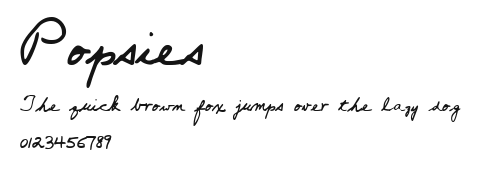 Popsies
The quick brown fox jumps over the lazy dog
0123456789